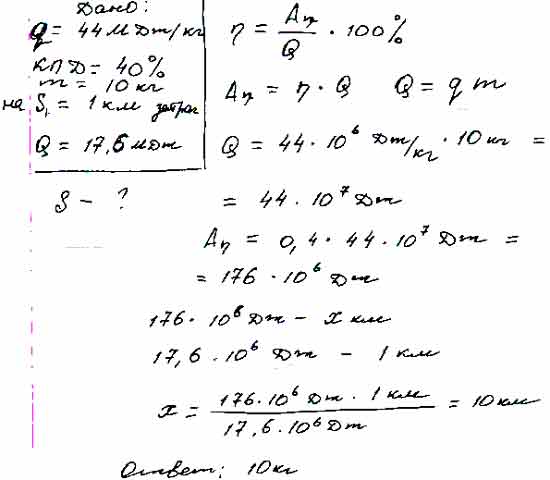 Дано:
q = 44 МДж/кг
КПД = 40%
m = 10 кг
на S₁ = 1 км затрач
Q = 17,6 МДж
S – ?
η = Aп/Q · 100%
Aп = η · Q Q = q m
Q = 44 · 10⁶ Дж/кг · 10 кг =
= 44 · 10⁷ Дж
Aп = 0,4 · 44 · 10⁷ Дж =
= 176 · 10⁶ Дж
176 · 10⁶ Дж – x км
17,6 · 10⁶ Дж – 1 км
x = 176 · 10⁶ Дж · 1 км / 17,6 · 10⁶ Дж = 10 км
Ответ: 10 кг